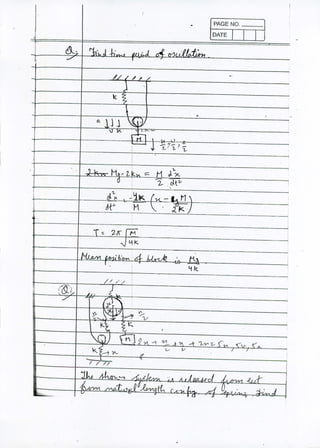 PAGE NO.
DATE
Q. Find time period of oscillation.
K
a
v x
M
x/2, v/2, a/2
Mg - 2Kx = M/2 d²x/dt²
d²x/dt² = -4K/M (x - Mg/2K)
T = 2π √M/4K
Mean position of block is Mg/4K
Q.
K
x/2
K K
M
2x + x/2 + x/2 + 2x = 5x, 5v, 5a
K x
The shown system is released from rest
from natural length config of spring. Find